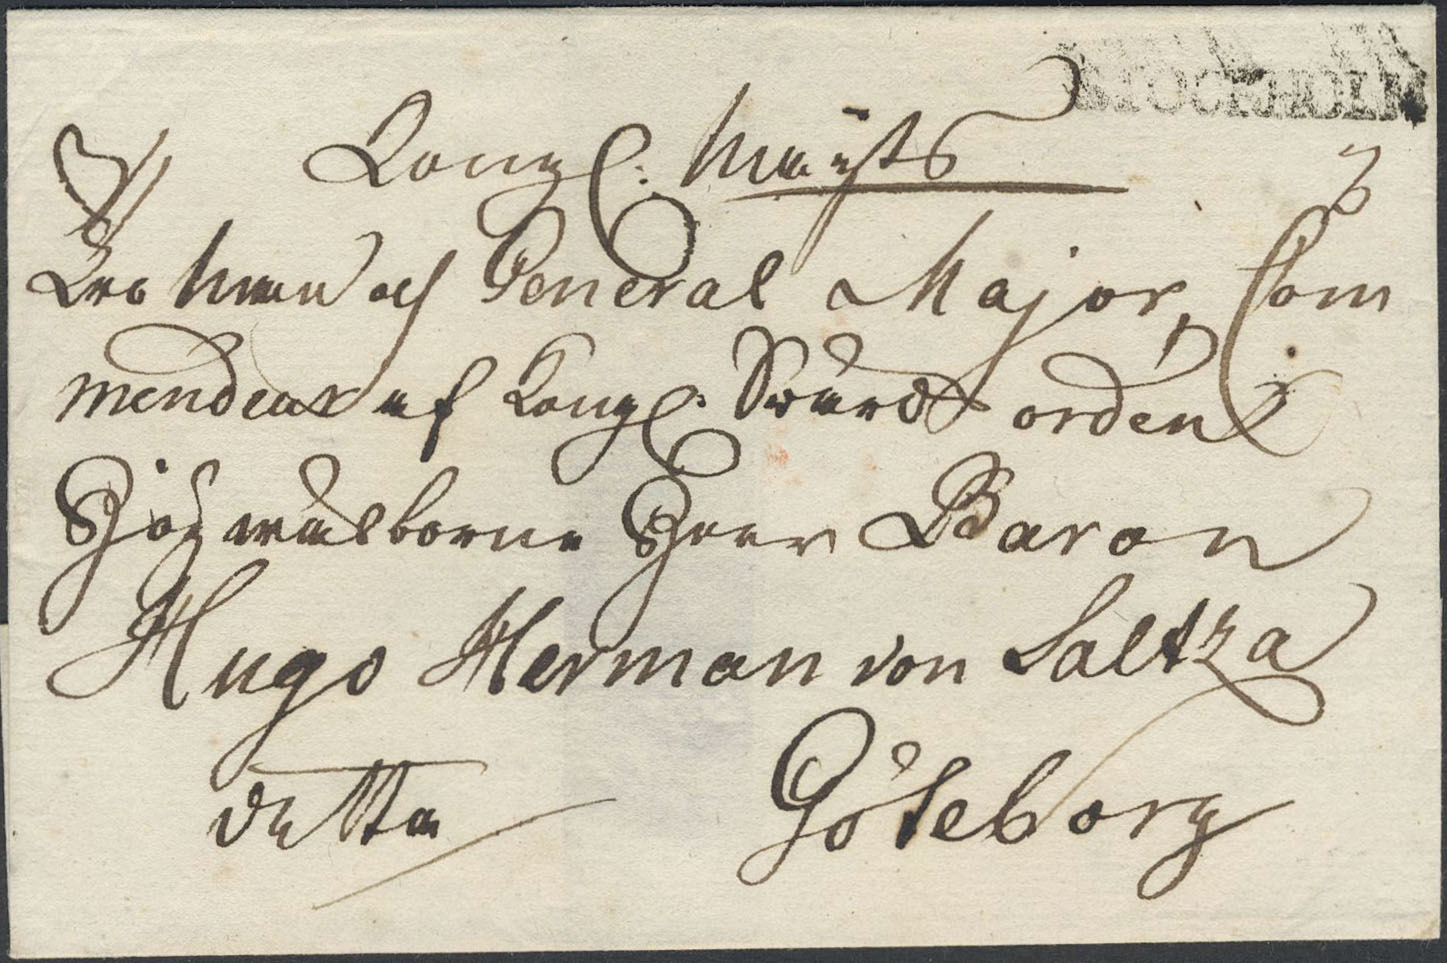 STOCKHOLM
Kongl: Maÿts
Tro Man och General Major, Com
mendeur af Kongl: Swärds orden
Högwälborne Herr Baron
Hugo Herman von Saltza
Götheborg